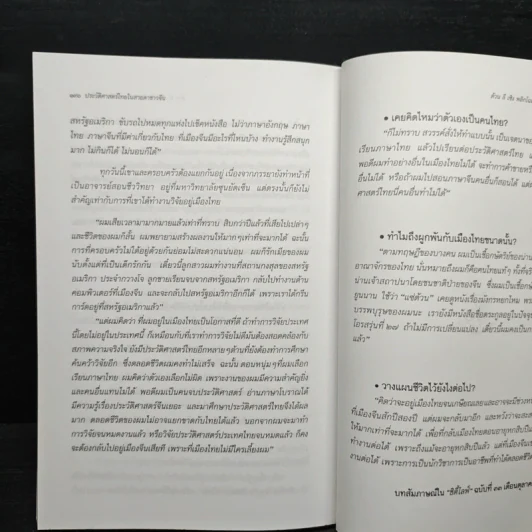 ๑๙๖ ประวัติศาสตร์ไทยในสายตาชาวจีน
สหรัฐอเมริกา ขับรถไปหมดทุกแห่งไปเช็คหนังสือ ไม่ว่าภาษาอังกฤษ ภาษา
ไทย ภาษาจีนที่มีค่าเกี่ยวกับไทย ที่เมืองจีนมีอะไรที่ไหนบ้าง ทำงานรู้สึกสนุก
มาก ไม่กินก็ได้ ไม่นอนก็ได้”
ทุกวันนี้เขาและครอบครัวต้องแยกกันอยู่ เนื่องจากภรรยายังทำหน้าที่
เป็นอาจารย์สอนชีววิทยา อยู่ที่มหาวิทยาลัยซุนยัดเซ็น แต่ตรงนั้นก็ยังไม่
สำคัญเท่ากับการที่เขาได้ทำงานวิจัยอยู่เมืองไทย
“ผมเสียเวลามามากมายแล้วเท่าที่ทราบ สิบกว่าปีแล้วที่เสียไปเปล่าๆ
และชีวิตของผมก็สั้น ผมพยายามสร้างผลงานให้มากๆเท่าที่จะมากได้ ฉะนั้น
การที่ครอบครัวไม่ได้อยู่ด้วยกันย่อมไม่สะดวกแน่นอน ผมก็รักเมียของผม
นับตั้งแต่ที่เป็นเด็กรักกัน เดี๋ยวนี้ลูกสาวผมทำงานที่สถานกงสุลของสหรัฐ
อเมริกา ประจำกวางโจ ลูกชายเรียนจบจากสหรัฐอเมริกา กลับไปทำงานด้าน
คอมพิวเตอร์ที่เมืองจีน และจะกลับไปสหรัฐอเมริกาอีกก็ได้ เพราะเราได้กรีน
การ์ดอยู่ที่สหรัฐอเมริกาแล้ว”
“แต่ผมคิดว่า ที่ผมอยู่ในเมืองไทยเป็นโอกาสที่ดี ถ้าทำการวิจัยประเทศ
นี้โดยไม่อยู่ในประเทศนี้ ก็เหมือนกับที่เราทำการวิจัยไม่ดีมันต้องสอดคล้องกับ
สภาพความจริงใจ ยังมีประวัติศาสตร์ไทยอีกหลายๆด้านที่ยังต้องทำการศึกษา
ค้นคว้าวิจัยอีก ซึ่งตลอดชีวิตผมคงทำไม่เสร็จ ฉะนั้น ตอนหนุ่มๆที่ผมเลือก
เรียนภาษาไทย ผมคิดว่าตัวเองเลือกไม่ผิด เพราะงานของผมมีความสำคัญยิ่ง
และคนอื่นแทนไม่ได้ พอดีผมเป็นคนจบประวัติศาสตร์ อ่านภาษาโบราณได้
มีความรู้เรื่องประวัติศาสตร์จีนเยอะ และมาศึกษาประวัติศาสตร์ไทยจึงได้ผล
มาก ตลอดชีวิตของผมไม่อาจแยกขาดกับไทยได้แล้ว นอกจากผมจะมาทำ
การวิจัยจนหมดงานแล้ว หรือวิจัยประวัติศาสตร์ประเทศไทยจนหมดแล้ว ก็คง
จะต้องกลับไปอยู่เมืองจีนเสียที เพราะที่เมืองไทยไม่มีใครเลี้ยงผม”
● เคยคิดไหมว่าตัวเองเป็นคนไทย?
“ก็ไม่ทราบ สวรรค์สั่งให้ทำแบบนั้น เป็นเจตนาของ
เรียนภาษาไทย แล้วไปเรียนต่อประวัติศาสตร์ไทย
พอดีผมทำอย่างอื่นในเมืองไทยไม่ได้ จะทำการค้าขายหรือ
อื่นไม่ได้ หรือถ้าผมไปสอนภาษาจีนคนอื่นก็สอนได้ แต่
ศาสตร์ไทยนี่คนอื่นทำไม่ได้”
● ทำไมถึงผูกพันกับเมืองไทยขนาดนั้น?
“ตามทฤษฎีของบางคน ผมเป็นเชื้อกษัตริย์
อาณาจักรของไทย นั่นหมายถึงผมก็คือคนไทยแท้ๆ ทั้งที่จริง
น่านเจ้าสถาปนาโดยชนชาติป่ายของจีน ซึ่งผมเป็นเชื้อกษัตริย์
ยูนนาน ใช้ว่า “แซ่ต้วน” เคยดูหนังเรื่องมังกรหยกไหม
บรรพบุรุษของผมนะ เรายังมีหนังสือชื่อตระกูลอยู่ในปัจจุบัน
โอรสรุ่นที่ ๒๗ ถ้าไม่มีการเปลี่ยนแปลง เดี๋ยวนี้ผมคงเป็น
แล้ว”
● วางแผนชีวิตไว้ยังไงต่อไป?
“คิดว่าจะอยู่เมืองไทยจนเกษียณเลยและอาจจะมีช่วง
ที่เมืองจีนสักปีสองปี แต่ผมจะกลับมาอีก และหวังว่าจะ
ให้มากเท่าที่จะมากได้ เพื่อที่กลับเมืองไทยตอนอายุหกสิบ
ทำงานต่อได้ เพราะถึงแม้จะอายุหกสิบปีแล้ว แต่ที่เมืองจีน
ต่อได้ เพราะการเป็นนักวิชาการเป็นอาชีพที่ทำได้ตลอดชีวิต
บทสัมภาษณ์ใน “ซิตี้ไลฟ์” ฉบับที่ ๑๓ เดือนตุลาคม